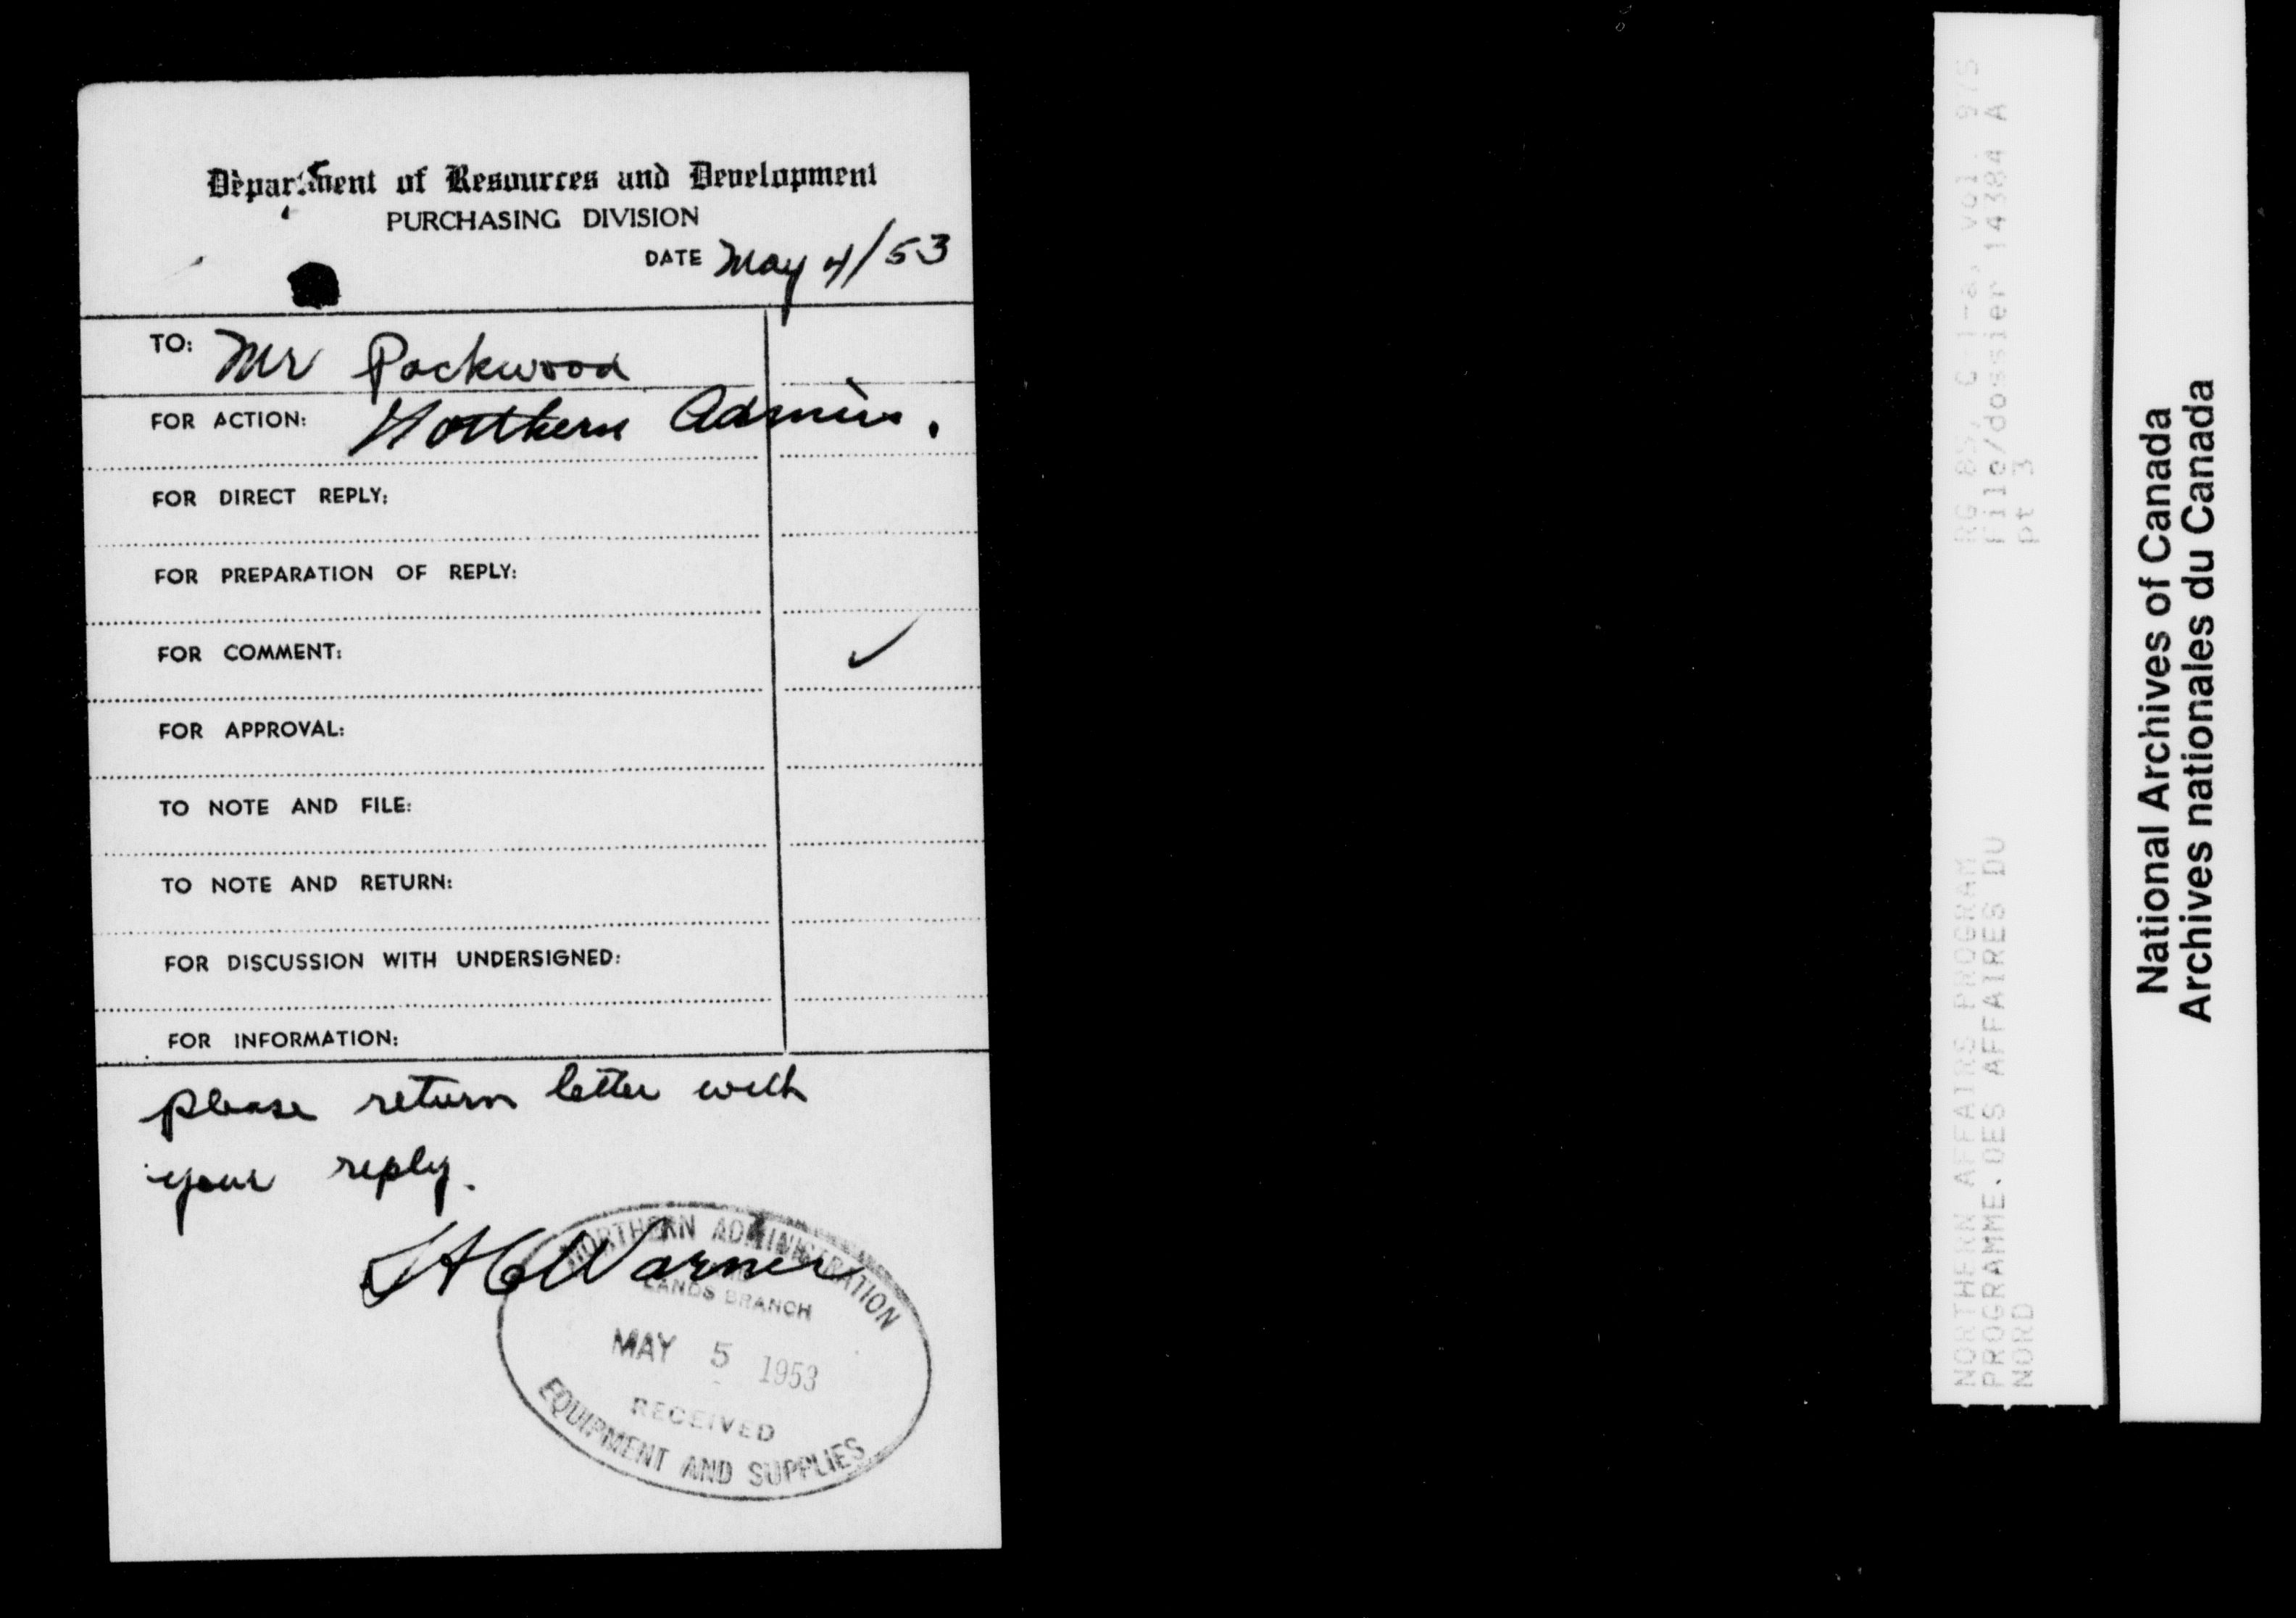 Department of Resources and Development
PURCHASING DIVISION
DATE May 4/53
TO: Mr Packwood
FOR ACTION: Northern Admin.
FOR DIRECT REPLY:
FOR PREPARATION OF REPLY:
FOR COMMENT: ✓
FOR APPROVAL:
TO NOTE AND FILE:
TO NOTE AND RETURN:
FOR DISCUSSION WITH UNDERSIGNED:
FOR INFORMATION:
please return letter with
your reply.
Warner
NORTHERN ADMINISTRATION
LANDS BRANCH
MAY 5 1953
RECEIVED
EQUIPMENT AND SUPPLIES
RG 85, C-1-a, vol. 975
File/dossier 14384 A
pt 3
NORTHERN AFFAIRS PROGRAM
PROGRAMME DES AFFAIRES DU
NORD
National Archives of Canada
Archives nationales du Canada